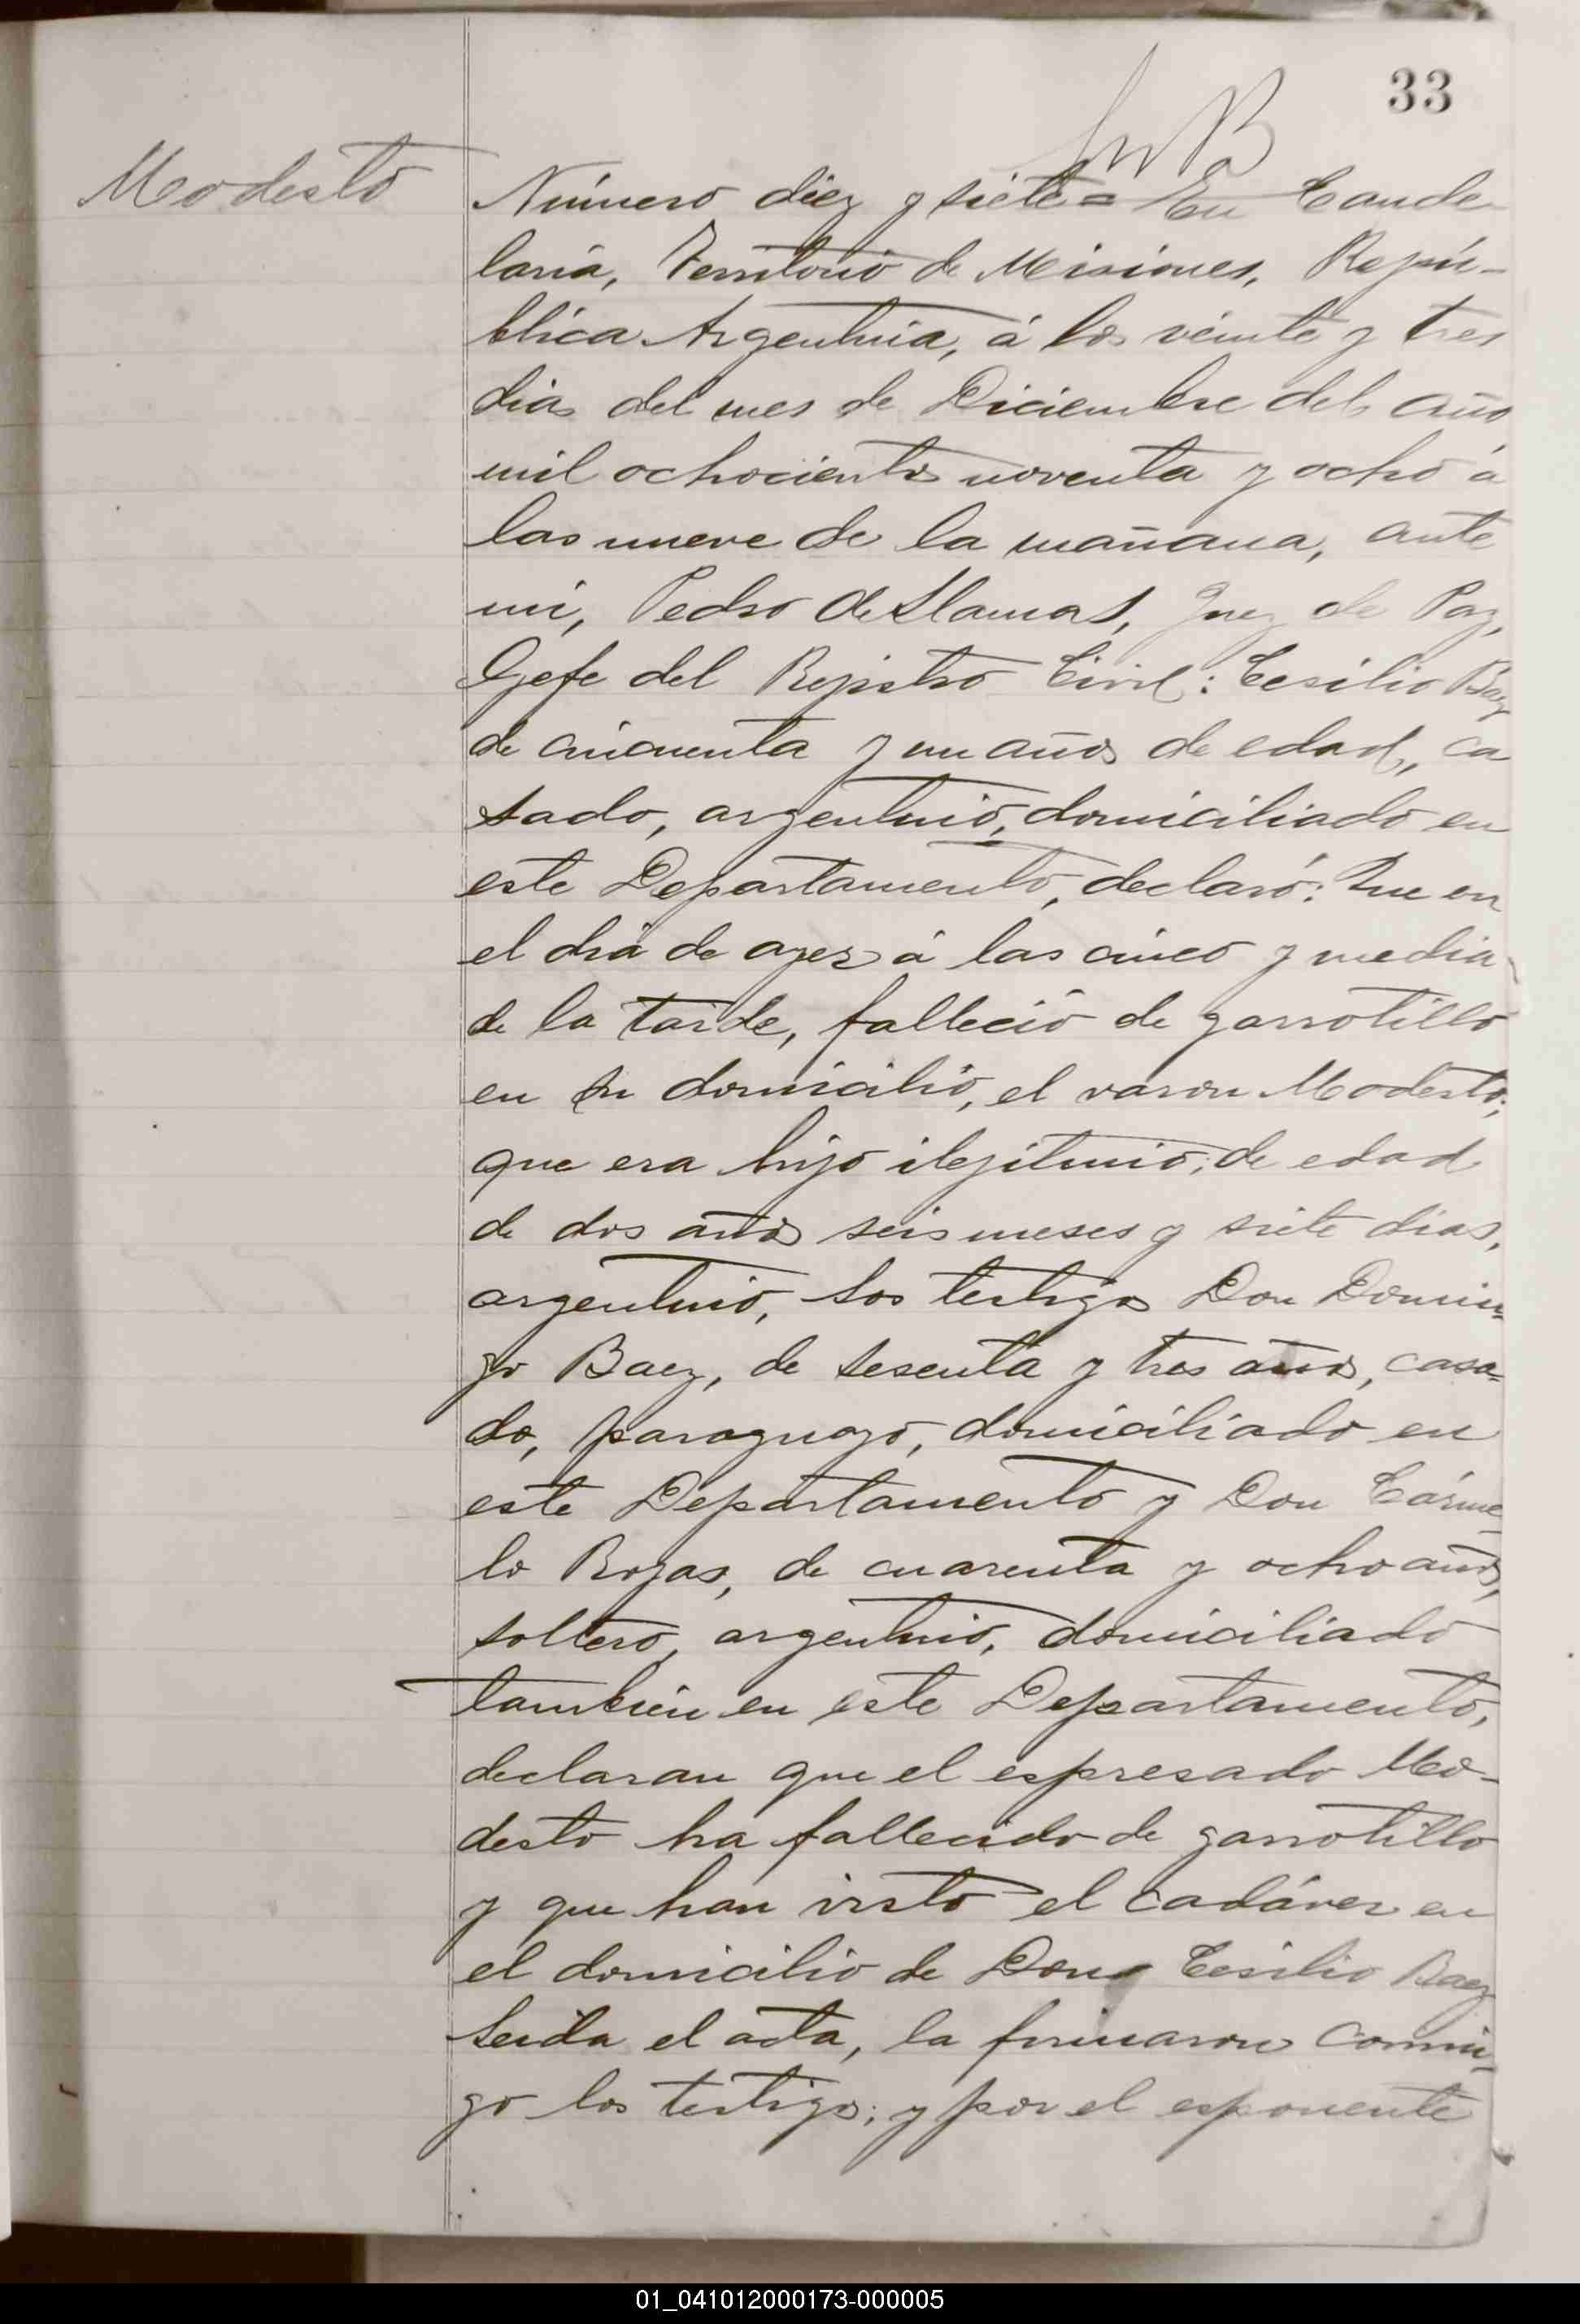 33
Modesto
Número diez y siete = En Cande-
laria, Territorio de Misiones, Repú-
blica Argentina, á los veinte y tres
dias del mes de Diciembre del año
mil ochocientos noventa y ocho á
las nueve de la mañana, ante
mi, Pedro de Llamas, Juez de Paz,
Gefe del Rejistro Civil: Cesilio Baez
de cincuenta y un años de edad, ca
sado, argentino, domiciliado en
este Departamento, declaró: Que en
el dia de ayer á las cinco y media
de la tarde, falleció de garrotillo
en su domicilio, el varon Modesto;
que era hijo ilejitimo; de edad
de dos años seis meses y siete dias,
argentino, Los testigos Don Domin-
go Baez, de sesenta y tres años, casa-
do, paraguayo, domiciliado en
este Departamento y Don Cárme-
lo Rojas, de cuarenta y ocho años,
soltero, argentino, domiciliado
tambien en este Departamento,
declaran que el espresado Mo-
desto ha fallecido de garrotillo
y que han visto el cadáver en
el domicilio de Don Cesilio Baez
Leida el acta, la firmaron conmi-
go los testigos; y por el esponente
01_041012000173-000005